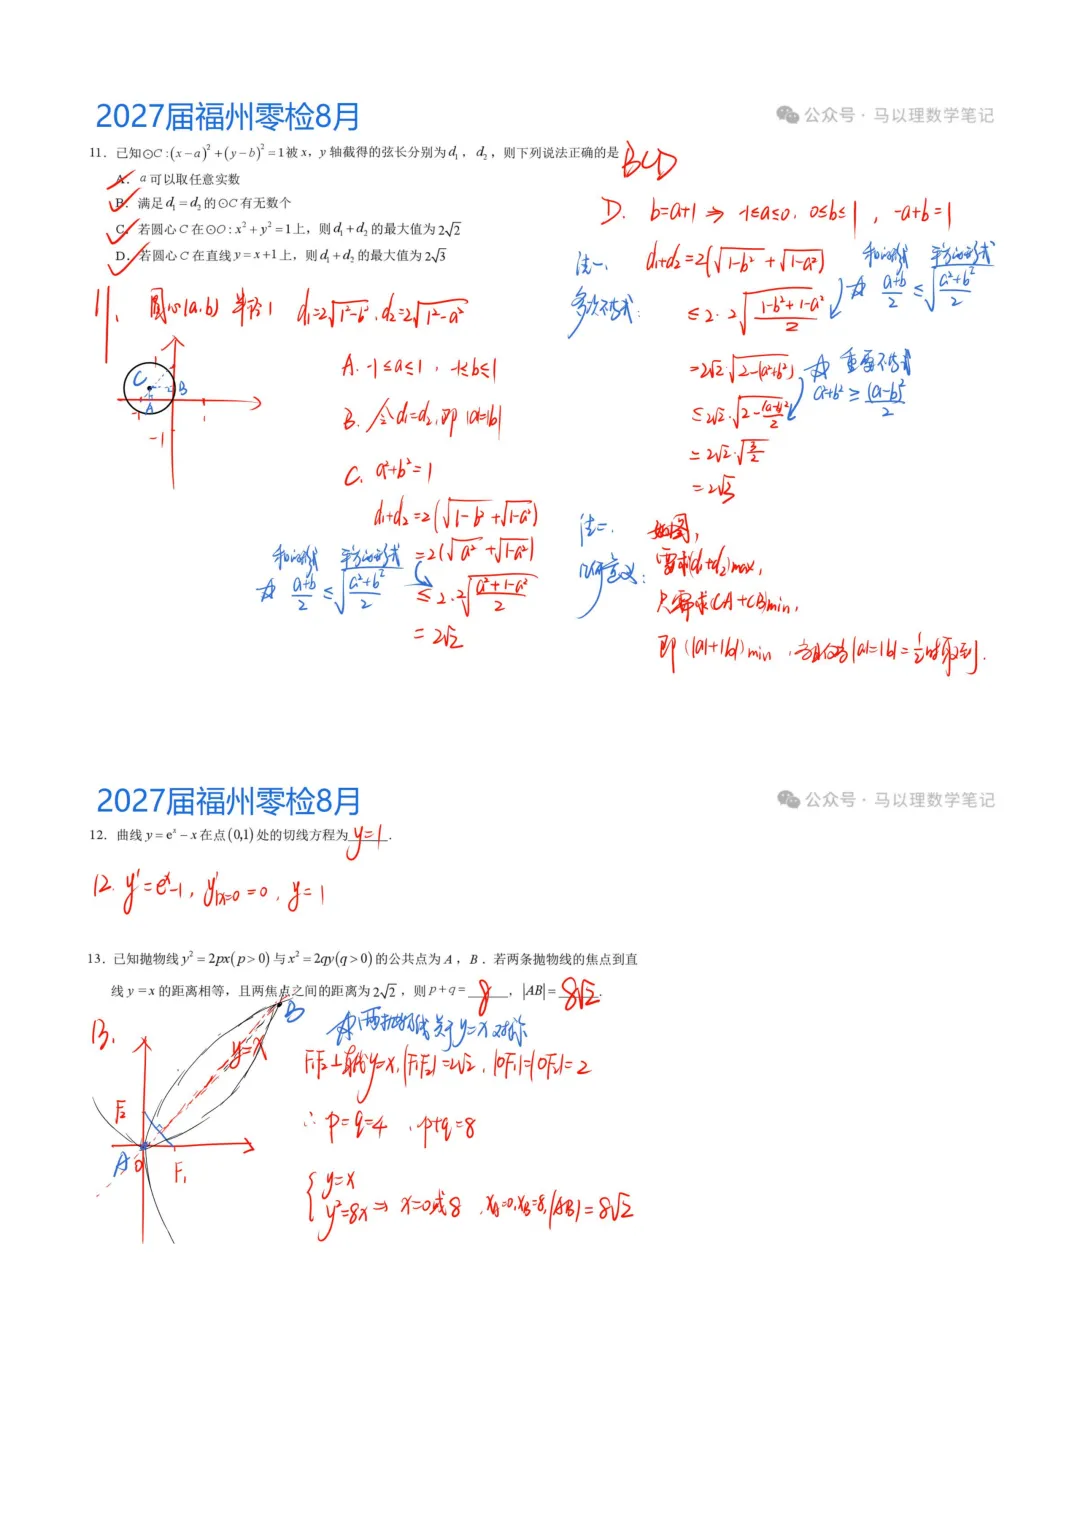 2027届福州零检8月
公众号·马以理数学笔记
11. 已知⊙C:(x−a)²+(y−b)²=1被x，y轴截得的弦长分别为d₁，d₂，则下列说法正确的是 BCD
A. a可以取任意实数
B. 满足d₁=d₂的⊙C有无数个
C. 若圆心C在⊙O:x²+y²=1上，则d₁+d₂的最大值为2√2
D. 若圆心C在直线y=x+1上，则d₁+d₂的最大值为2√3
11. 圆心(a,b) 半径1 d₁=2√(1²−b²), d₂=2√(1²−a²)
C
B
A
−1
1
−1
A. −1≤a≤1, −1≤b≤1
B. 令d₁=d₂, 即|a|=|b|
C. a²+b²=1
d₁+d₂=2(√(1−b²)+√(1−a²))
=2(√a²+√(1−a²))
≤2·2√((a²+1−a²)/2)
=2√2
和的形式 平方的形式
☆ (a+b)/2 ≤ √((a²+b²)/2)
D. b=a+1 ⇒ −1≤a≤0, 0≤b≤1, −a+b=1
法一、
多次不等式:
d₁+d₂=2(√(1−b²)+√(1−a²))
≤2·2√((1−b²+1−a²)/2)
=2√2·√(2−(a²+b²))
≤2√2·√(2−(a−b)²/2)
=2√2·√(3/2)
=2√3
和的形式 平方的形式
☆ (a+b)/2 ≤ √((a²+b²)/2)
☆ 重要不等式
a²+b² ≥ (a−b)²/2
法二、
几何意义:
如图,
需求(d₁+d₂)max,
只需求(CA+CB)min,
即(|a|+|b|)min, 当且仅当|a|=|b|=1/2时取到.
2027届福州零检8月
公众号·马以理数学笔记
12. 曲线y=eˣ−x在点(0,1)处的切线方程为 y=1 .
12. y'=eˣ−1, y'|x=0=0, y=1
13. 已知抛物线y²=2px(p>0)与x²=2qy(q>0)的公共点为A，B. 若两条抛物线的焦点到直
线y=x的距离相等，且两焦点之间的距离为2√2，则p+q= 8 ，|AB|= 8√2 .
13.
B
y=x
F₂
A
O
F₁
☆两抛物线关于y=x对称
F₁F₂⊥直线y=x, |F₁F₂|=2√2, |OF₁|=|OF₂|=2
∴ p=q=4, p+q=8
{y=x
y²=8x ⇒ x=0或8, x_A=0, x_B=8, |AB|=8√2